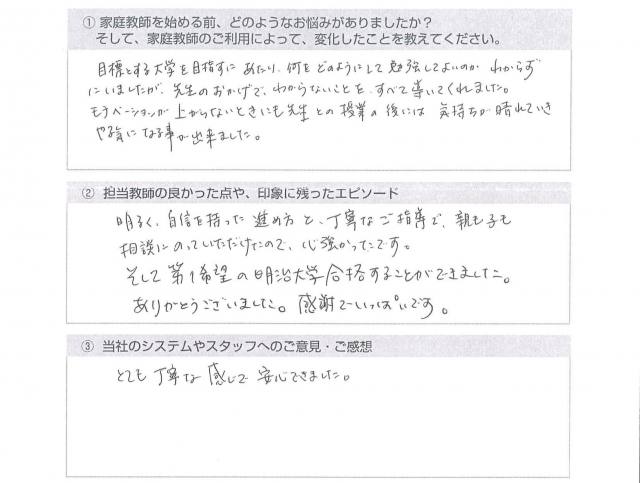 ① 家庭教師を始める前、どのようなお悩みがありましたか？
そして、家庭教師のご利用によって、変化したことを教えてください。
目標とする大学を目指すにあたり、何をどのようにして勉強してよいのか わからず
にいましたが、先生のおかげで、わからないことを、すべて導いてくれました。
モチベーションが上がらないときにも先生との授業の後には 気持ちが晴れていき
やる気になる事が出来ました。
② 担当教師の良かった点や、印象に残ったエピソード
明るく、自信を持った進め方と、丁寧なご指導で、親も子も
相談にのっていただけたので、心強かったです。
そして第1希望の明治大学合格することができました。
ありがとうございました。感謝でいっぱいです。
③ 当社のシステムやスタッフへのご意見・ご感想
とても丁寧な感じで安心できました。